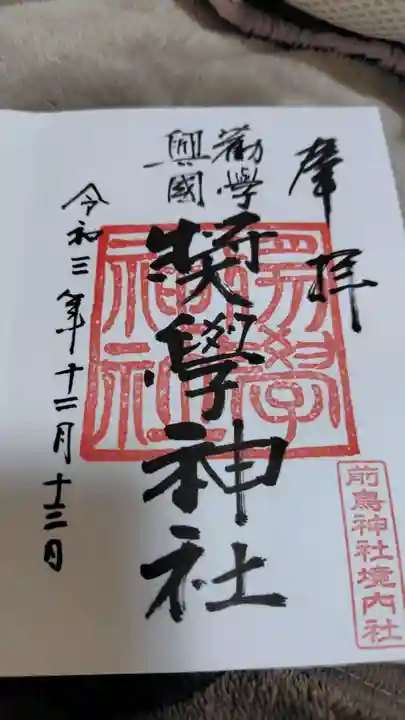 奉拝
勸學
興國
奨學神社
奨學神社
令和三年十二月十三日
前鳥神社境内社